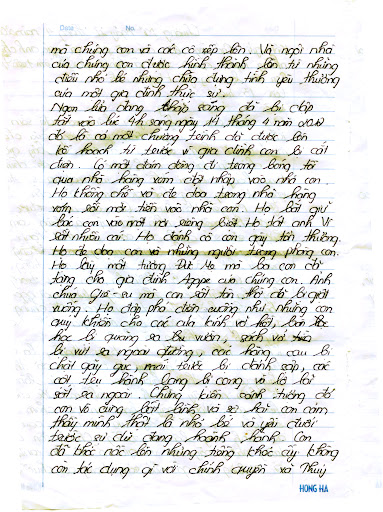 Date No
mà chúng con và các cô xếp lên. Và ngôi nhà
của chúng con được hình thành lên từ những
điều nhỏ bé nhưng chứa đựng tình yêu thương
của một gia đình thực sự.
Ngọn lửa đang thắp sáng đã bị dập
tắt vào lúc 4h sáng ngày 14 tháng 4 năm
đó là cả một chương trình đã được lên
kế hoạch từ trước vì gia đình con bị cắt
điện. Có một đoàn đông đi trong bóng tối
qua nhà hàng xóm đột nhập vào nhà con.
Họ khống chế và đe dọa trong nhà hàng
xóm rồi mới tiến vào nhà con. Họ bắt giữ
bác con vào một nơi riêng biệt Họ đốt anh Vi
rất nhiều cái. Họ đánh cô con gây tổn thương.
Họ đe dọa con và những người trong phòng con.
Họ lấy một tượng Đức Mẹ mà ba con đã
tặng cho gia đình Agape của chúng con. Ảnh
chúa Giê su mà con rất tôn thờ đã bị giật
xuống. Họ đập phá điên cuồng như những con
quỷ khiến cho các cửa kính vỡ hết, bàn
học bị quăng ra vườn, sách vở
bị vứt ra ngoài đường, các hàng cau bị
chặt gãy gục, mái trước bị đánh sập, các
cột bị cong và lộ lõi
sắt ra ngoài. Chứng kiến cảnh tượng đó
con vô cùng bất bình và sợ hãi con cảm
thấy mình thật là nhỏ bé và yếu đuối
trước sự dữ đang hoành hành. Con
đã khóc nấc lên nhưng tiếng khóc ấy không
còn tác dụng gì với chính quyền xã Thuỵ
HONG HA